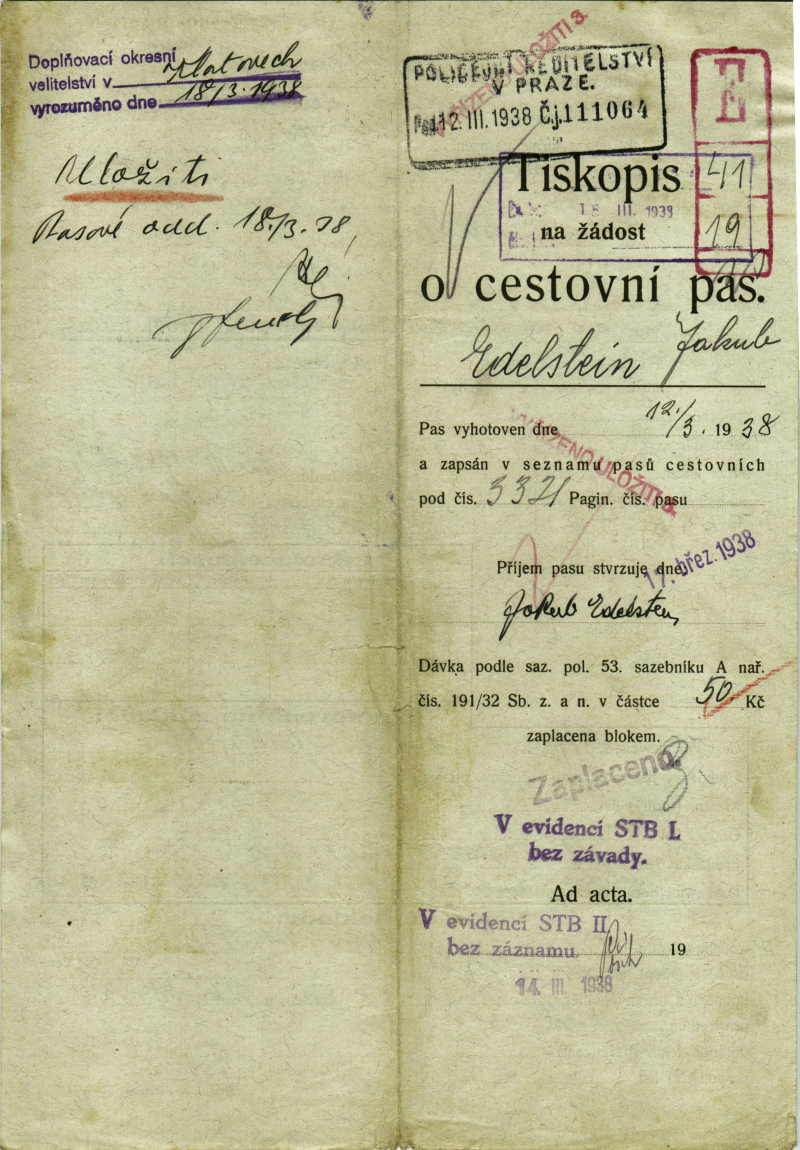 Doplňovací okresní
velitelství v Klatovech
vyrozuměno dne 18/3. 1938
Uložiti
Pasové odd. 18./3. 38,
POLICEJNÍ ŘEDITELSTVÍ
V PRAZE.
12. III. 1938 Č.j. 111064
E
41
19
Tiskopis
18 III. 1938
na žádost
o cestovní pas.
Edelstein Jakub
Pas vyhotoven dne 12./3. 1938
a zapsán v seznamu pasů cestovních
VYŘÍZENO ULOŽITI
pod čís. 3321 Pagin. čís. pasu
17. břez. 1938
Příjem pasu stvrzuje dne
Jakub Edelstein
Dávka podle saz. pol. 53. sazebníku A nař.
čís. 191/32 Sb. z. a n. v částce 50 Kč
zaplacena blokem.
Zaplaceno
V evidencí STB I.
bez závady.
Ad acta.
V evidencí STB II
bez záznamu 19
14. III 1938